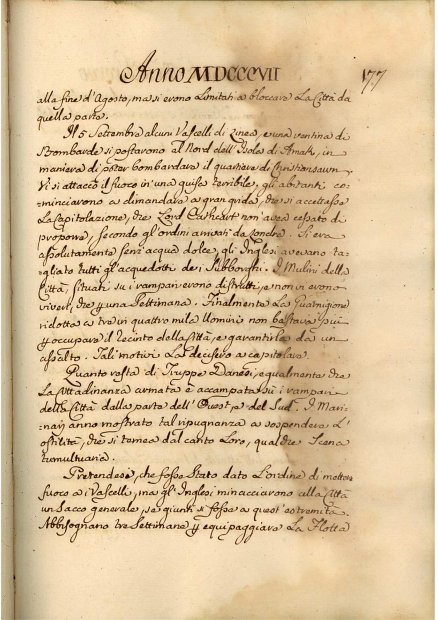 Anno MDCCCVII
177
alla fine d'Agosto, ma si erono limitati a bloccare La Città da
quella parte.
Il 5 Settembre alcuni Vascelli di Linea, e una ventina di
Bombarde si postarono al Nord dell'Isola di Amak, in
maniera di poter bombardare il quartiere di Christiansawn
Vi si attaccò il fuoco in una guisa terribile, gli abitanti co-
minciarono a dimandare a gran grida, che si accettasse
La Capitolazione, che Lord Cathcart non avea cessato di
proporre, secondo gl'ordini arrivati da Londra. Si era
assolutamente senz'acqua dolce, gl'Inglesi avevano ta-
gliato tutti gl'acquedotti de i Subborghi. I Mulini della
Città, situati su i rampari erono distrutti, e non vi erono
viveri, che ꝑ una Settimana. Finalmente La Guarnigione
ridotta a tre in quattro mila Uomini non bastava più
ꝑ occupare il recinto della Città, e garantirla da un
assalto. Tali motivi La decisero a capitolare.
Quanto resta di Truppe Danesi, equalmente che
La Cittadinanza armata è accampata sù i rampari
della Città dalla parte dell'Ouest, e del Sud. I Mari-
nari anno mostrato tal ripugnanza a sospendere L'
ostilità, che si temea dal canto Loro, qualche Scena
tumultuaria.
Pretendesi, che fosse Stato dato L'ordine di metter
fuoco a i Vascelli, ma gl'Inglesi minacciarono alla Città
un Sacco generale, se giunti si fosse a quest'estremità.
Abbisognano tre Settimane ꝑ equipaggiare La Flotta